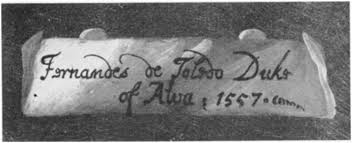 Fernandes de Toledo Duke
of Alva ; 1557.